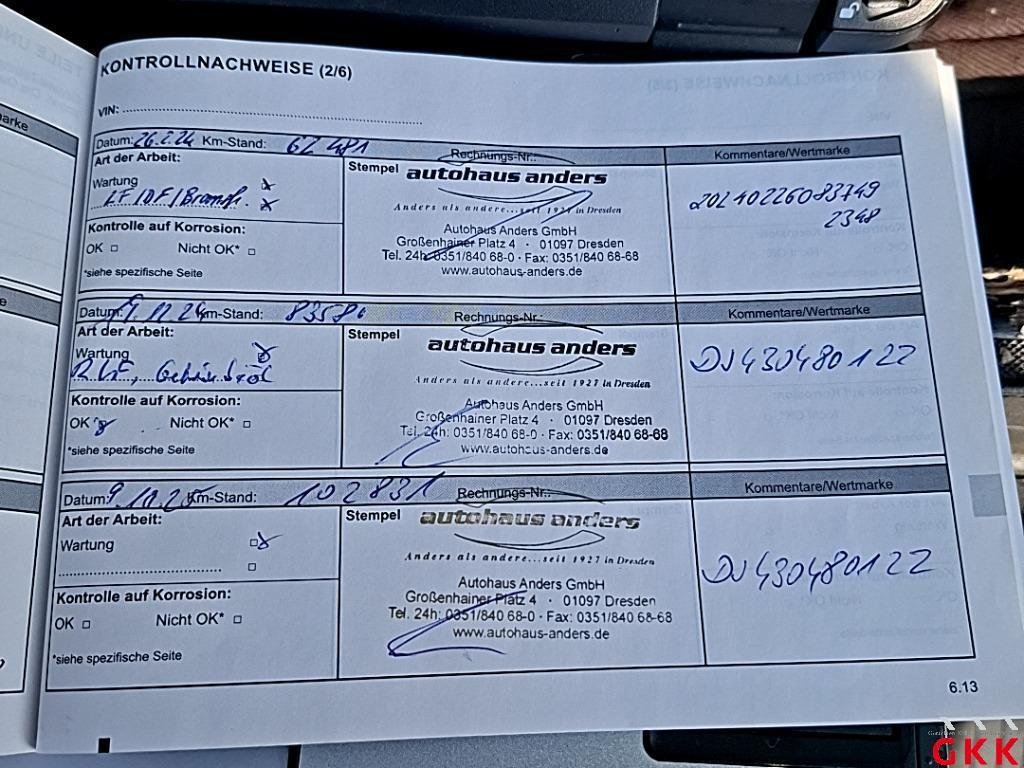 KONTROLLNACHWEISE (2/6)
VIN:
Datum: 26.2.24 Km-Stand: 62 481
Rechnungs-Nr.:
Kommentare/Wertmarke
Art der Arbeit:
Wartung
LF/OF/Bremsfl.
Kontrolle auf Korrosion:
OK Nicht OK*
*siehe spezifische Seite
Stempel
autohaus anders
Anders als andere...seit 1927 in Dresden
Autohaus Anders GmbH
Großenhainer Platz 4 · 01097 Dresden
Tel. 24h: 0351/840 68-0 · Fax: 0351/840 68-68
www.autohaus-anders.de
20240226083749
2348
Datum: 9.12.24 Km-Stand: 83580
Rechnungs-Nr.:
Kommentare/Wertmarke
Art der Arbeit:
Wartung
Kontrolle auf Korrosion:
OK Nicht OK*
*siehe spezifische Seite
Stempel
autohaus anders
Anders als andere...seit 1927 in Dresden
Autohaus Anders GmbH
Großenhainer Platz 4 · 01097 Dresden
Tel. 24h: 0351/840 68-0 · Fax: 0351/840 68-68
www.autohaus-anders.de
DJ430480122
Datum: 9.10.25 Km-Stand: 102831
Rechnungs-Nr.:
Kommentare/Wertmarke
Art der Arbeit:
Wartung
Kontrolle auf Korrosion:
OK Nicht OK*
*siehe spezifische Seite
Stempel
autohaus anders
Anders als andere...seit 1927 in Dresden
Autohaus Anders GmbH
Großenhainer Platz 4 · 01097 Dresden
Tel. 24h: 0351/840 68-0 · Fax: 0351/840 68-68
www.autohaus-anders.de
DJ430480122
6.13
GKK